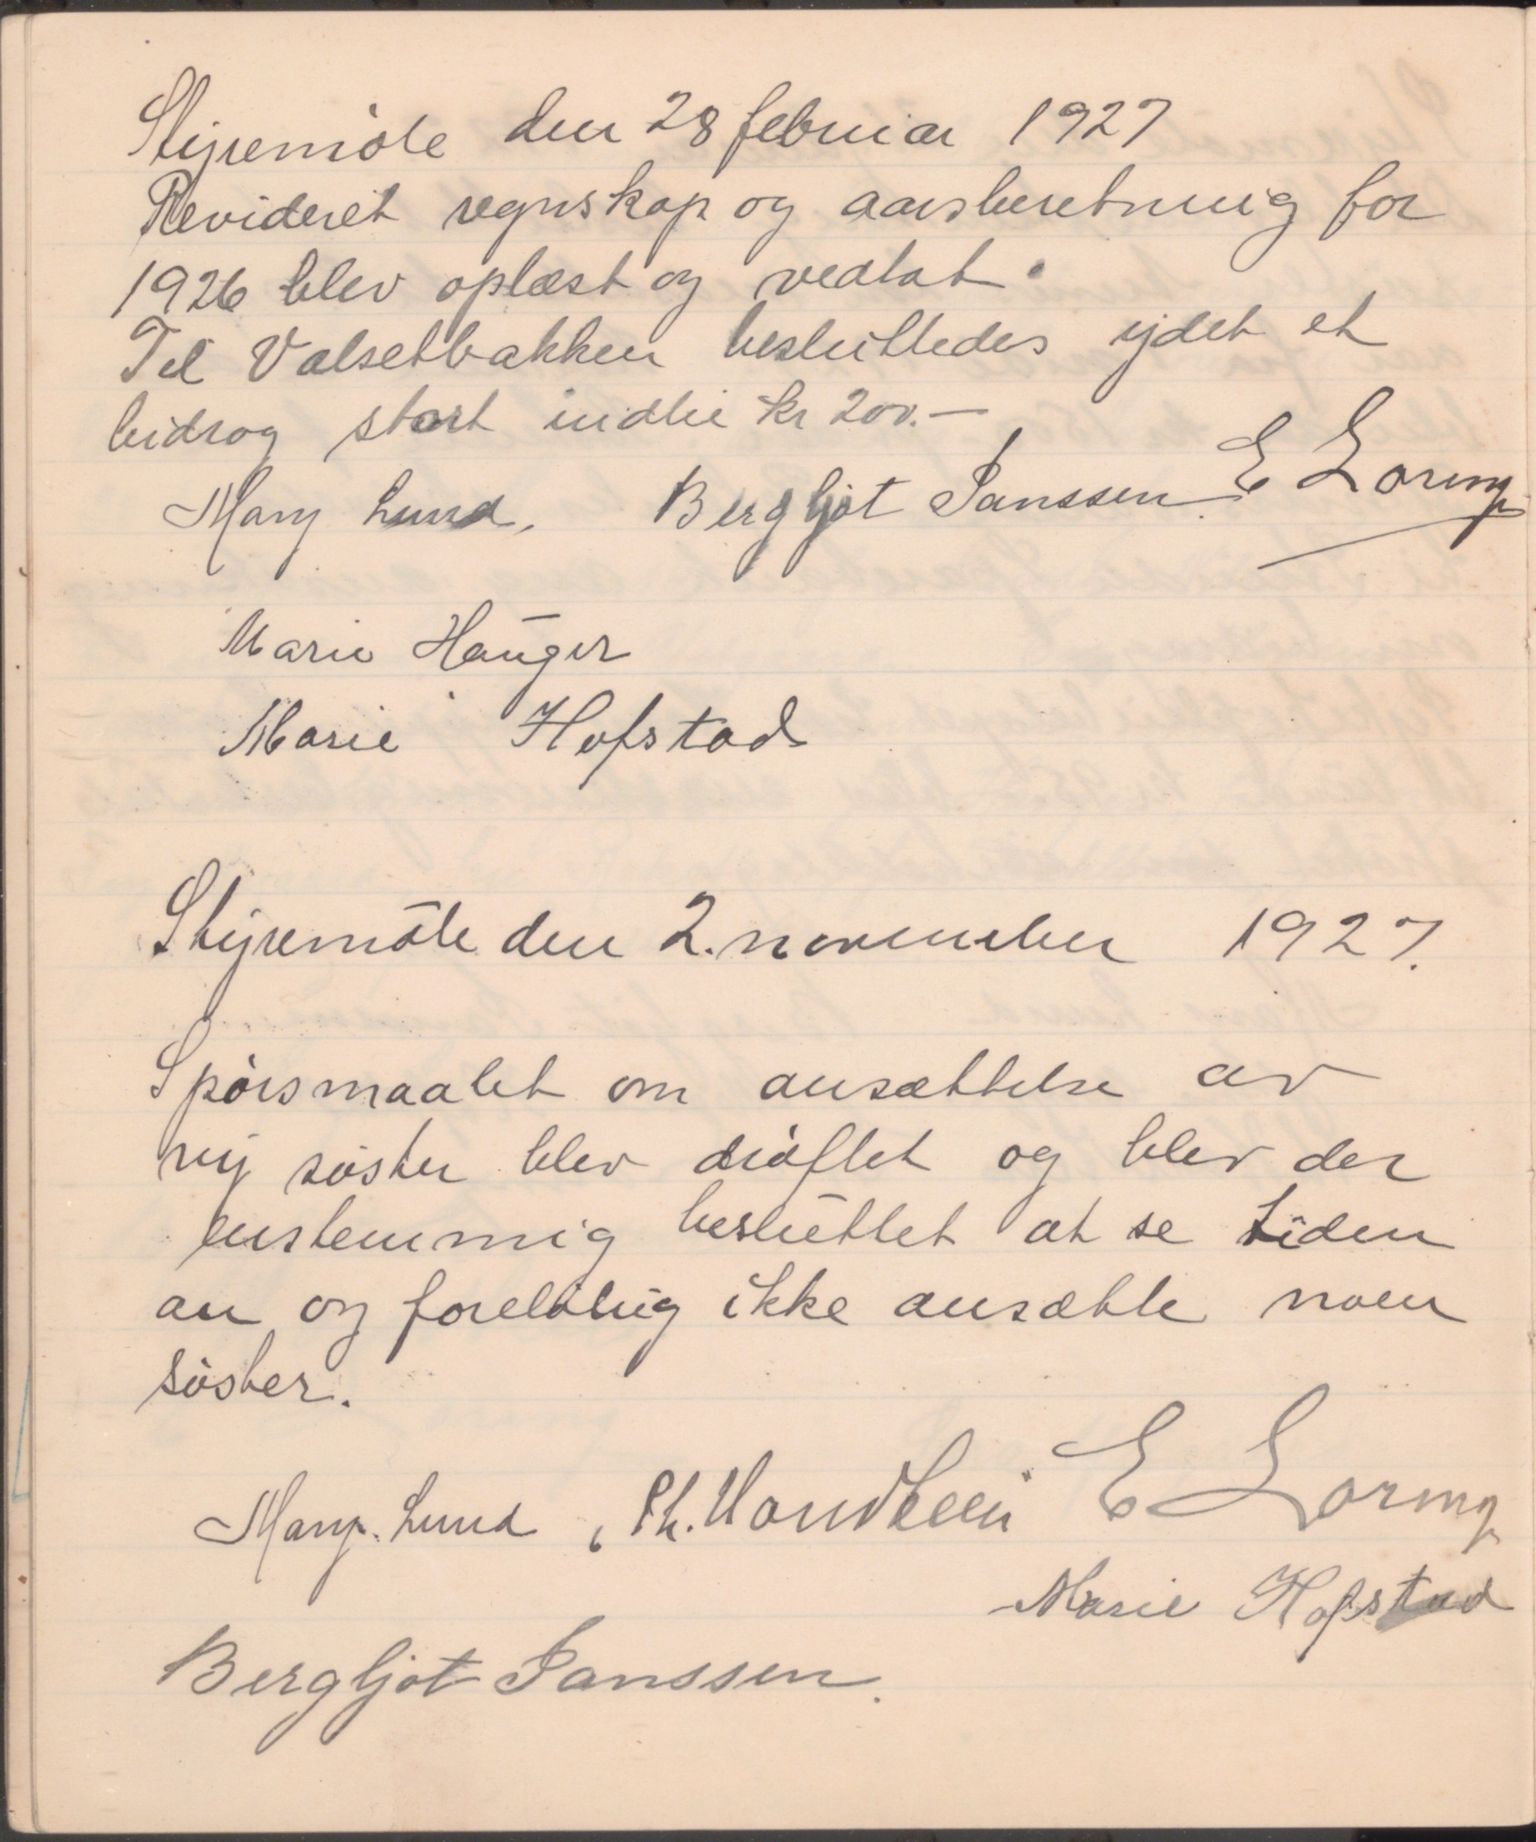 Styremöte den 28 februar 1927
Revideret regnskap og aarsberetning for
1926 blev oplæst og vedtat.
Til Valsetbakken besluttedes ydet et
bidrag stort indtil kr 200.—
Mary Lund, Bergljot Janssen E Loring
Marie Hauger
Marie Hofstad
Styremöte den 2. november 1927.
Spörsmaalet om ansættelse av
ny söster blev dröftet og blev der
enstemmig besluttet at se tiden
an og forelöbig ikke ansætte noen
söster.
Mary Lund, E Loring
Marie Hofstad
Bergljot Janssen.